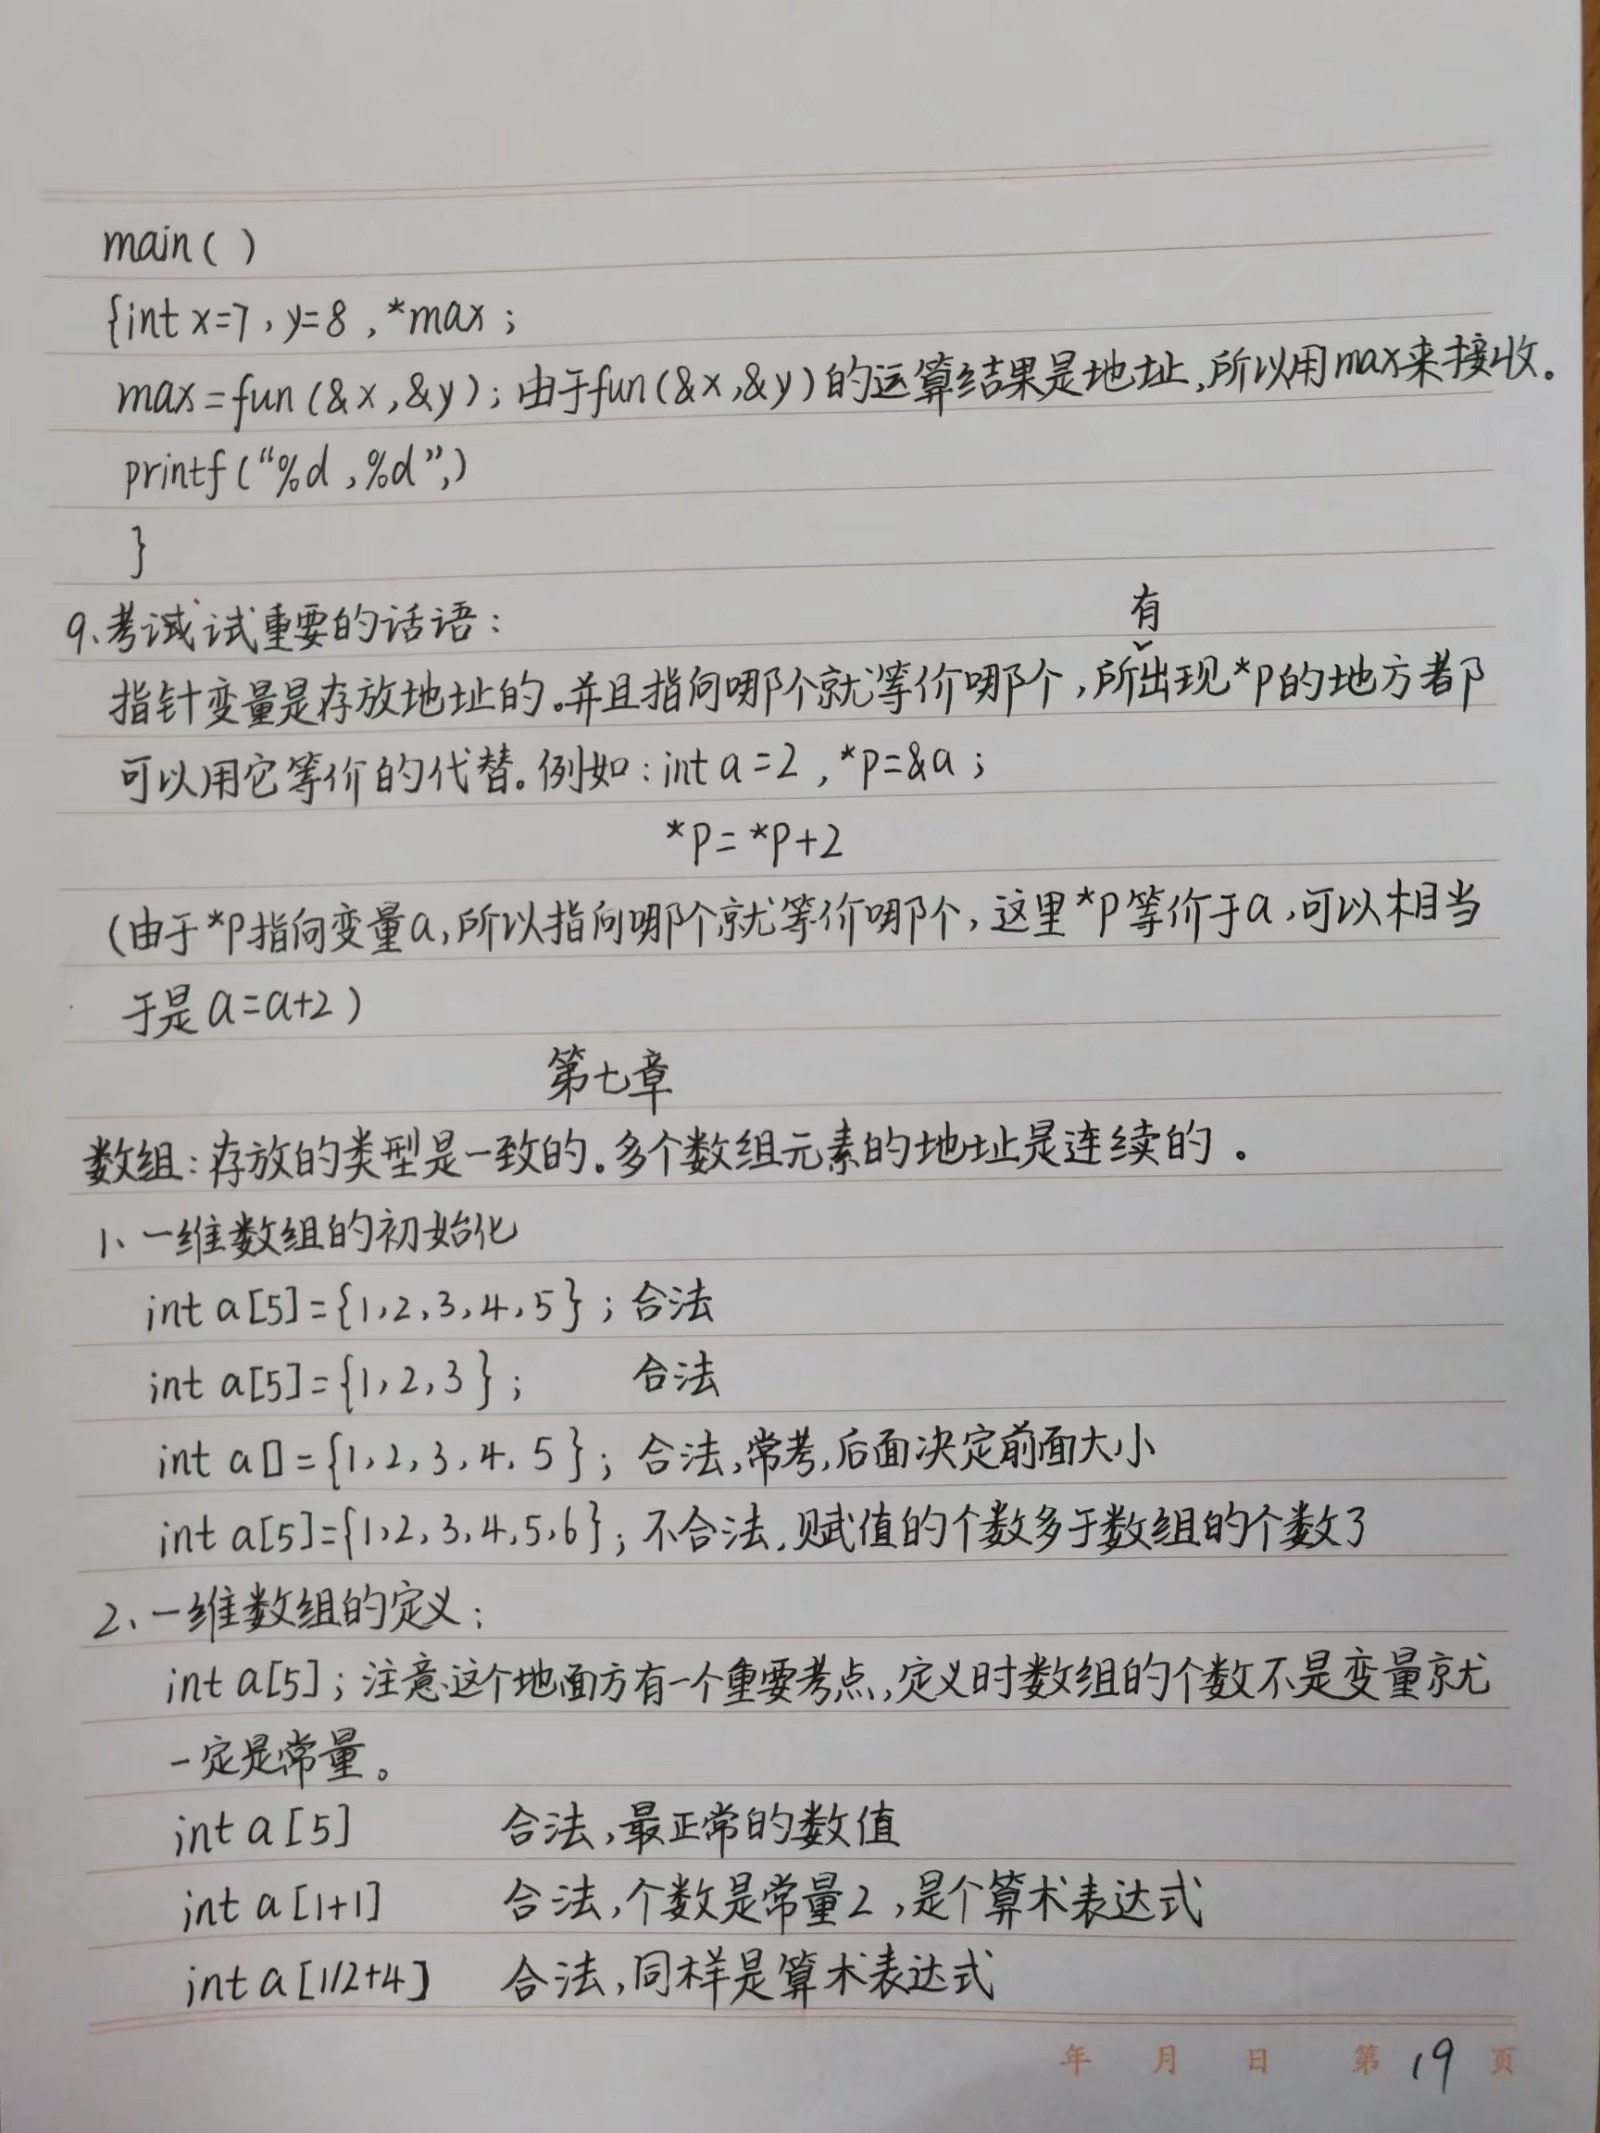 main( )
{int x=7，y=8，*max；
max=fun(&x,&y)；由于fun(&x,&y)的运算结果是地址，所以用max来接收。
printf(“%d，%d”,)
}
9、考试试重要的话语：
有
指针变量是存放地址的。并且指向哪个就等价哪个，所出现*p的地方都
可以用它等价的代替。例如：int a=2，*p=&a；
*p=*p+2
(由于*p指向变量a，所以指向哪个就等价哪个，这里*p等价于a，可以相当
于是a=a+2)
第七章
数组：存放的类型是一致的。多个数组元素的地址是连续的。
1、一维数组的初始化
int a[5]={1，2，3，4，5}；合法
int a[5]={1，2，3}；合法
int a[]={1，2，3，4，5}；合法，常考，后面决定前面大小
int a[5]={1，2，3，4，5，6}；不合法，赋值的个数多于数组的个数了
2、一维数组的定义；
int a[5]；注意这个地面方有一个重要考点，定义时数组的个数不是变量就
一定是常量。
int a[5] 合法，最正常的数值
int a[1+1] 合法，个数是常量2，是个算术表达式
int a[1/2+4] 合法，同样是算术表达式
年 月 日 第 19 页